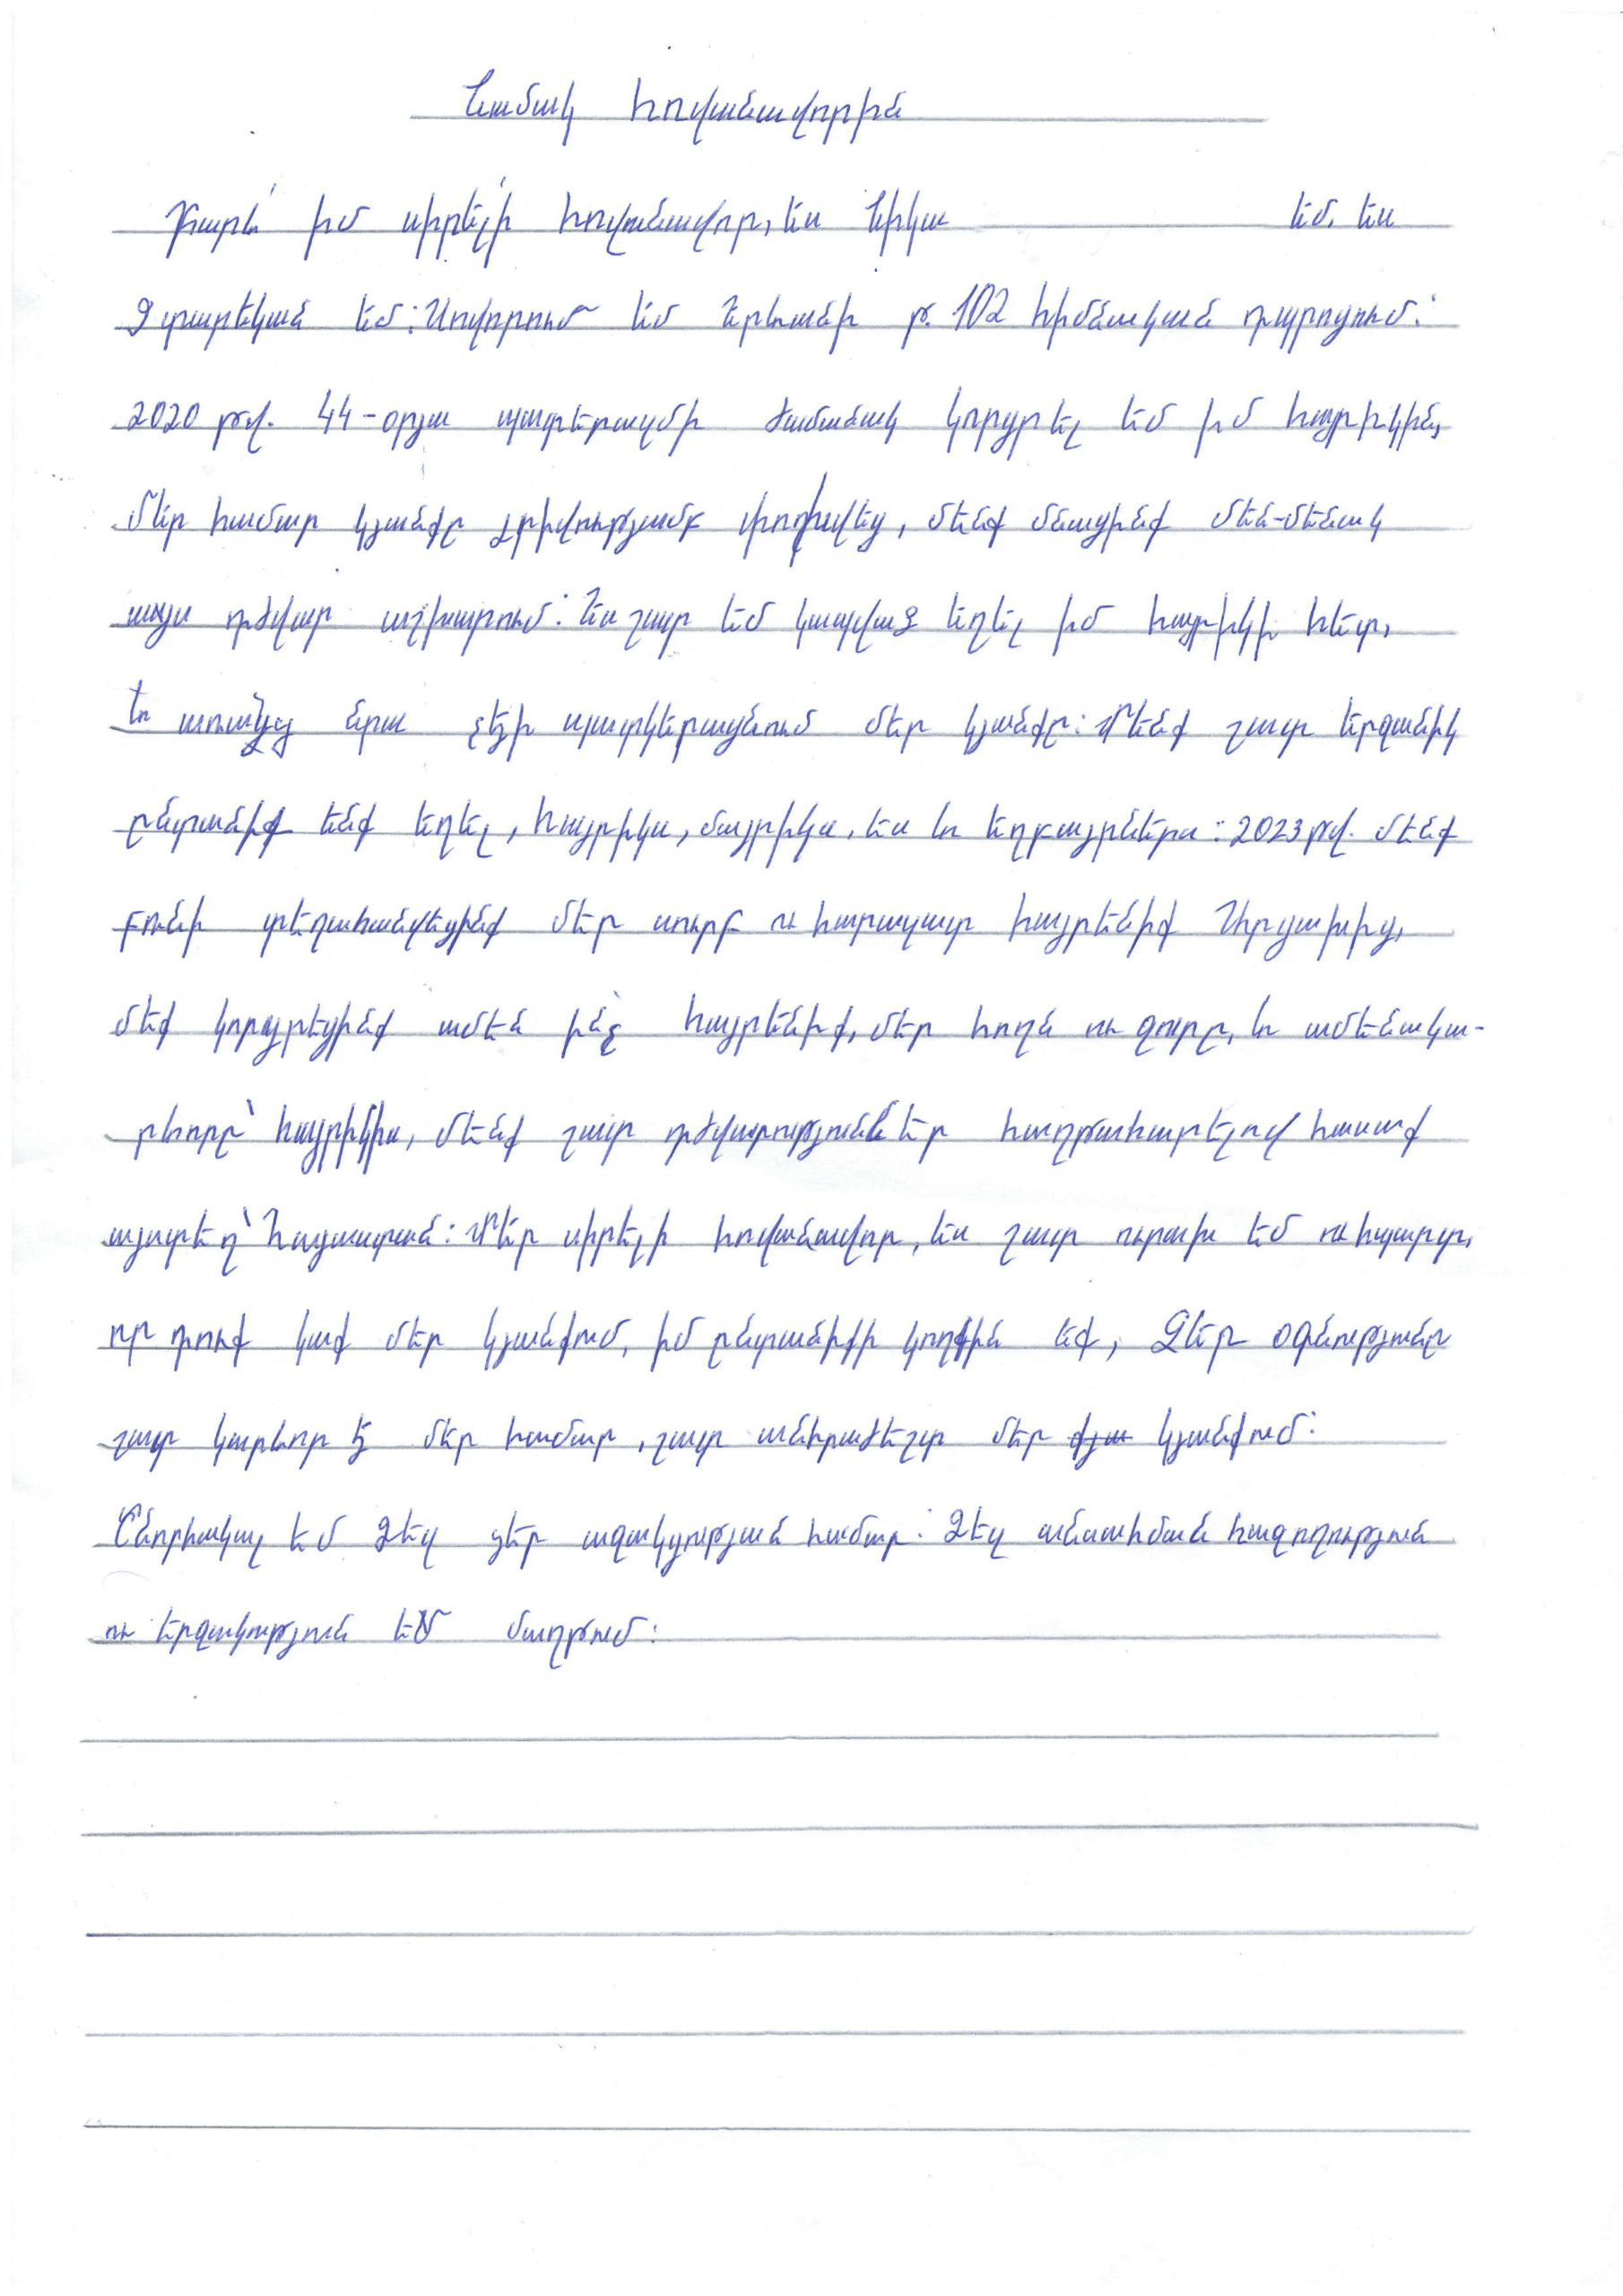 Նամակ հովանավորին
Բարև՛ իմ սիրելի՛ հովանավոր, ես Նիկա եմ, ես
9 տարեկան եմ: Սովորում եմ Երևանի թ. 102 հիմնական դպրոցում:
2020 թվ. 44-օրյա պատերազմի ժամանակ կորցրել եմ իմ հայրիկին,
մեր համար կյանքը լրիվությամբ փոխվեց, մենք մնացինք մեն-մենակ
այս դժվար աշխարում: Ես շատ եմ կապված եղել իմ հայրիկի հետ,
և առանց նրա չէի պատկերացնում մեր կյանքը: Մենք շատ երջանիկ
ընտանիք ենք եղել, հայրիկս, մայրիկս, ես և եղբայրներս: 2023 թվ. մենք
բռնի տեղահանվեցինք մեր սուրբ ու հարազատ հայրենիք Արցախից,
մեք կորցրեցինք ամեն ինչ հայրենիք, մեր հողն ու ջուրը, և ամենակա-
րևորը՝ հայրիկիս, մենք շատ դժվարություններ հաղթահարելով հասաք
այստեղ՝ Հայաստան: Մեր սիրելի հովանավոր, ես շատ ուրախ եմ ու հպարտ,
որ դուք կաք մեր կյանքում, իմ ընտանիքի կողքին եք, Ձեր օգնությունը
շատ կարևոր է մեր համար, շատ անհրաժեշտ մեր քյա կյանքում:
Շնորհակալ եմ Ձեզ ցեր աջակցության համար: Ձեզ անսահման հաջողություն
ու երջակություն եմ մաղթում: